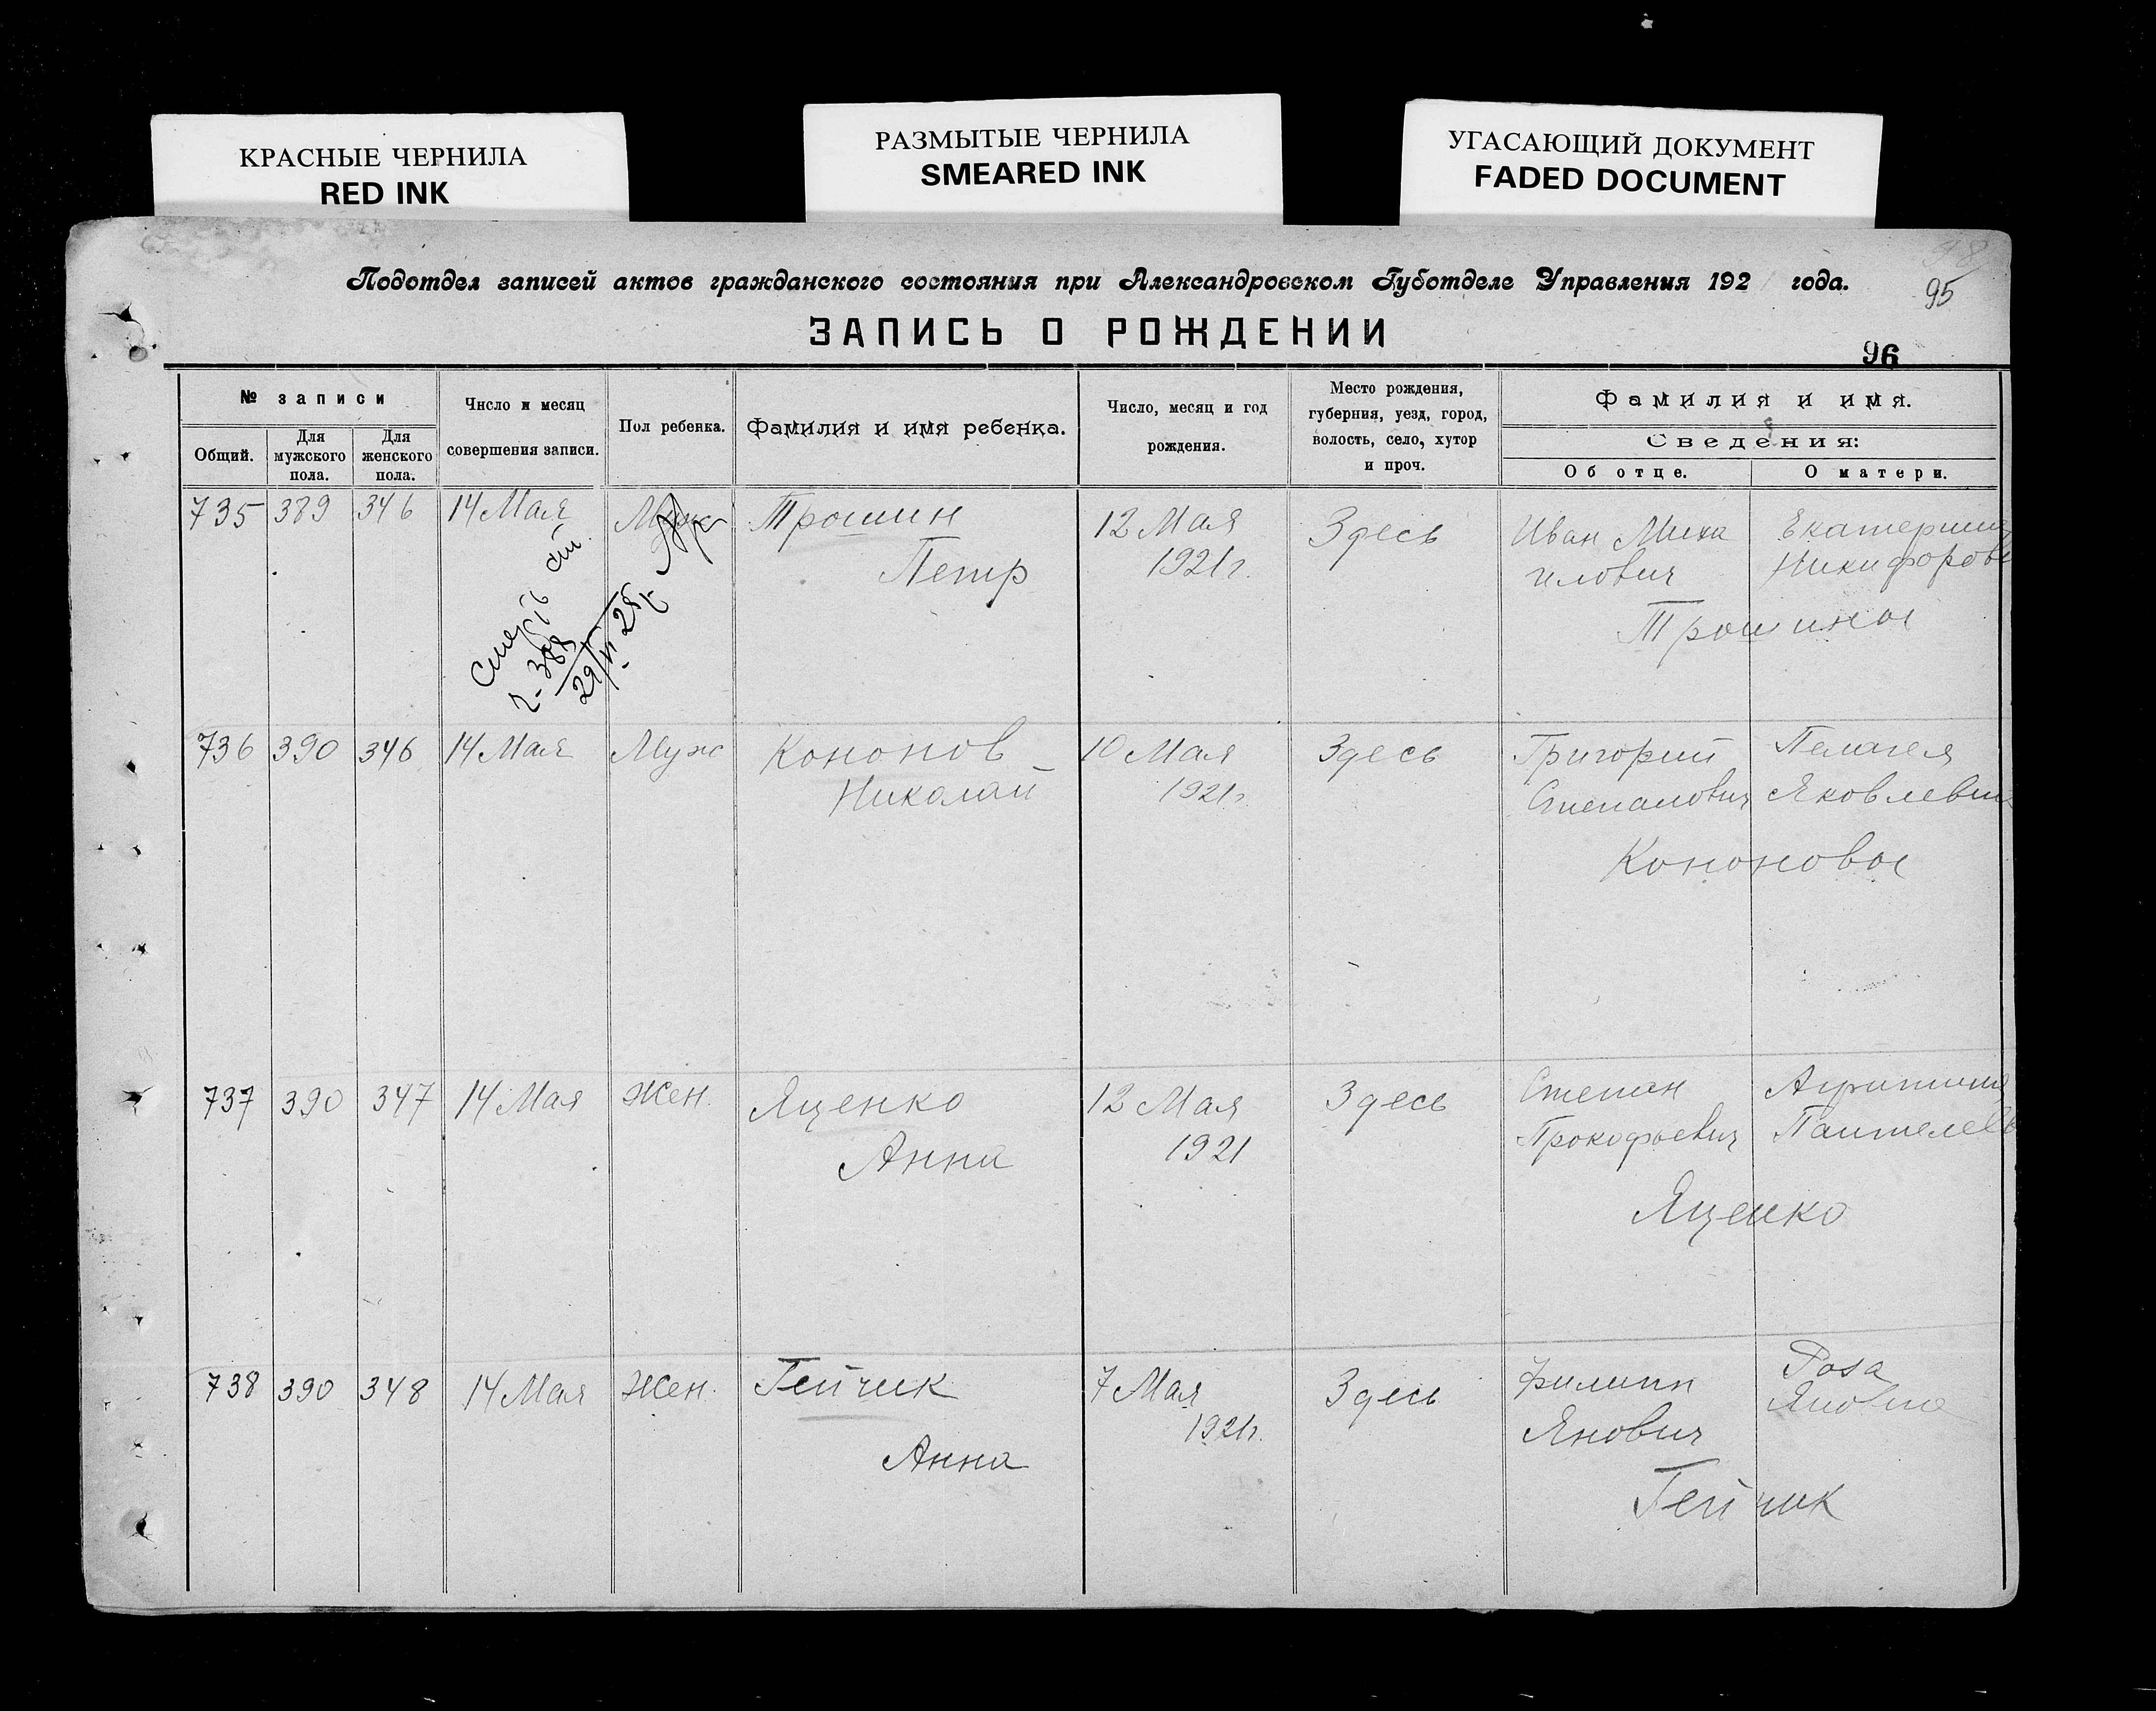 КРАСНЫЕ ЧЕРНИЛА
RED INK
РАЗМЫТЫЕ ЧЕРНИЛА
SMEARED INK
УГАСАЮЩИЙ ДОКУМЕНТ
FADED DOCUMENT
Подотдел записей актов гражданского состояния при Александровском Губотделе Управления 192 года.
95
ЗАПИСЬ О РОЖДЕНИИ
96
№ записи
Общий.
Для мужского пола.
Для женского пола.
Число и месяц
совершения записи.
Пол ребенка.
Фамилия и имя ребенка.
Число, месяц и год
рождения.
Место рождения,
губерния, уезд, город,
волость, село, хутор
и проч.
Фамилия и имя.
Сведения:
Об отце.
О матери.
735 389 346 14 Мая Муж Трошин 12 Мая Здесь Иван Миха Екатерина
Петр 1921 г. илович Никифоров
Трошины
736 390 346 14 Мая Муж Кононов 10 Мая Здесь Григорий Пелагея
Николай 1921 г. Степанович Яковлевна
Кононовы
737 390 347 14 Мая Жен. Яценко 12 Мая Здесь Степан
Анна 1921 Прокофьевич Пантелеев
Яценко
738 390 348 14 Мая Жен. Гейчик 7 Мая Здесь Филипп Роза
1921 г. Янович Яновна
Анна
Гейчик